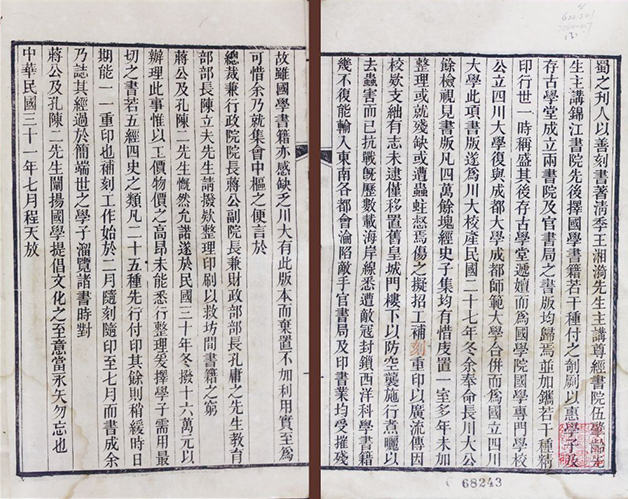 蜀之刊人以善刻書著淸季王湘漪先生主講尊經書院伍肇齡先
生主講錦江書院先後擇國學書籍若干種付之剞劂以惠學子及
存古學堂成立兩書院及官書局之書版均歸焉並加鐫若干種精
印行世一時稱盛其後存古學堂遞嬗而爲國學院國學專門學校
公立四川大學復與成都大學成都師範大學合併而爲國立四川
大學此項書版遂爲川大校產民國二十七年冬余奉命長川大公
餘檢視見書版凡四萬餘塊經史子集均有惜庋置一室多年未加
整理或就殘缺或遭蟲蛀惄焉傷之擬招工補刻重印以廣流傳因
校欵支絀有志未逮僅移置舊皇城門樓下以防空襲施行煮曬以
去蟲害而已抗戰旣歷數載海岸線悉遭敵寇封鎖西洋科學書籍
幾不復能輸入東南各都會淪陷敵手官書局及印書業均受摧殘
故雖國學書籍亦感缺乏川大有此版本而棄置不加利用實至爲
可惜余乃就集會中樞之便言於
總裁兼行政院院長蔣公副院長兼財政部部長孔庸之先生敎育
部部長陳立夫先生請撥欵整理印刷以救坊間書籍之窮
蔣公及孔陳二先生慨然允諾遂於民國三十年冬撥十六萬元以
辦理此事惟以工價物價之高昂未能悉行整理爰擇學子需用最
切之書若五經四史之類凡二十五種先行付印其餘則稍緩時日
期能一一重印也補刻工作始於二月隨刻隨印至七月而書成余
乃誌其經過於簡端世之學子瀏覽諸書時對
蔣公及孔陳二先生闡揚國學提倡文化之至意當永矢勿忘也
中華民國三十一年七月程天放
68243